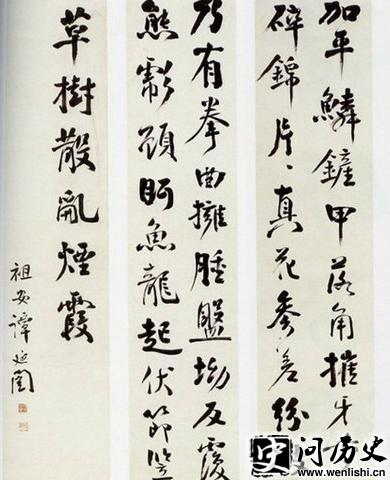 加平鱗鏟甲落角摧牙
碎錦片〻真花參差紛
乃有拳曲擁腫盤坳反覆
熊彪顧盼魚龍起伏節竪
草樹散亂煙霞
祖安譚延闓
问历史
www.wenlishi.cn